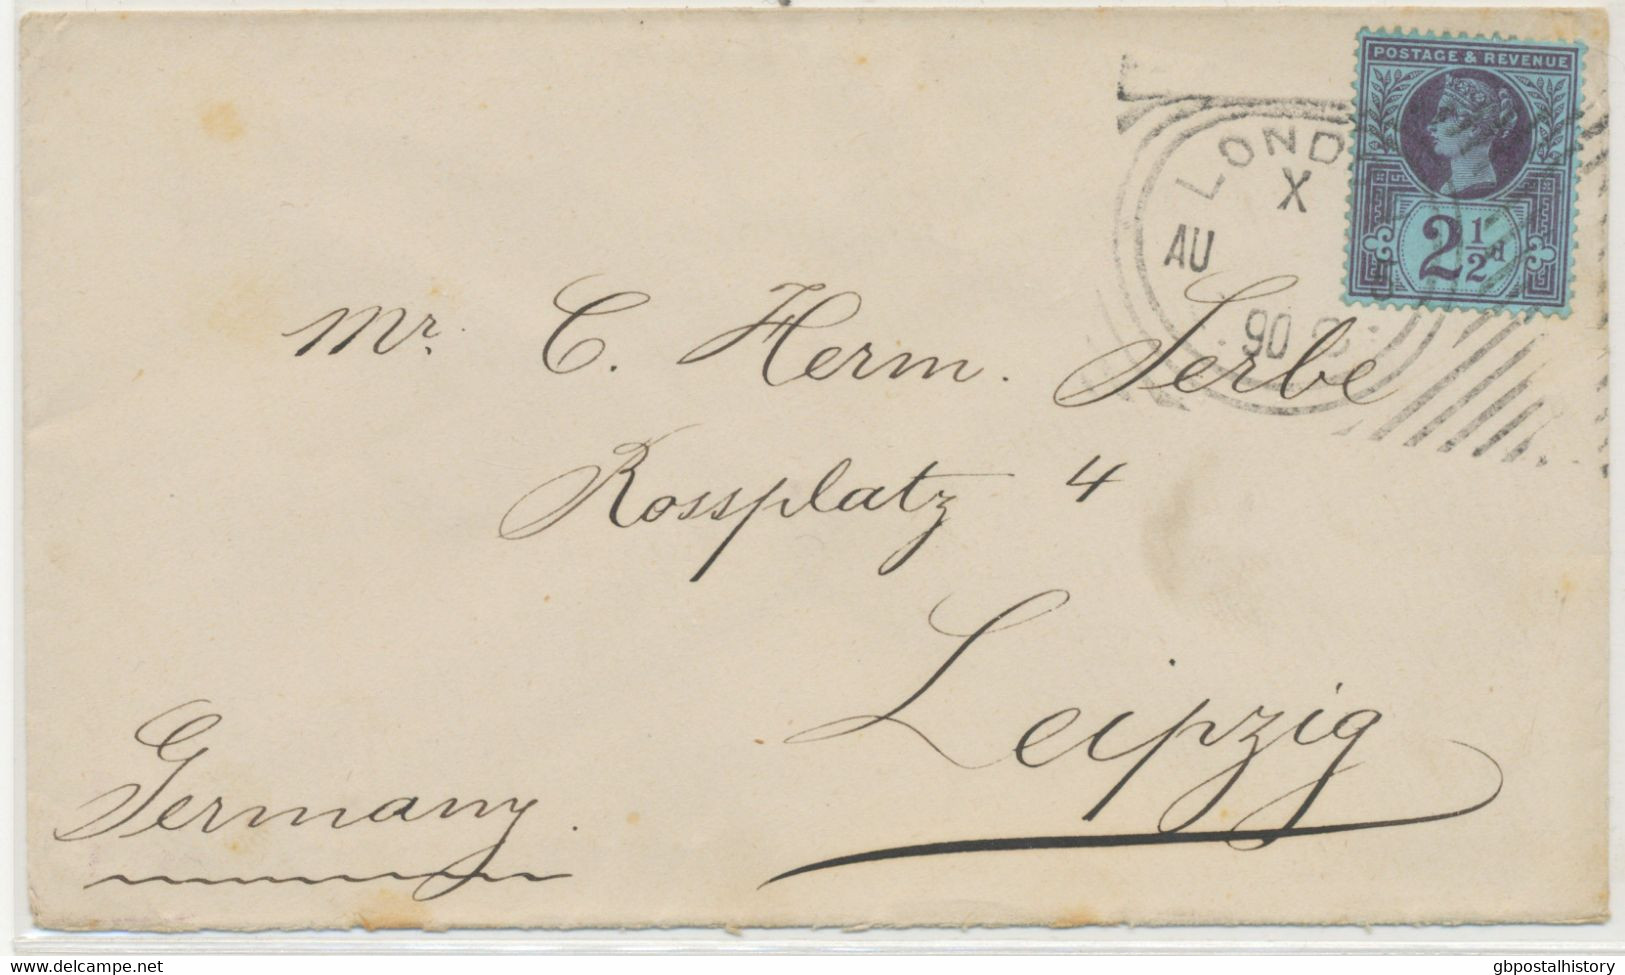 POSTAGE & REVENUE
2½d
LOND
X
AU
90
Mr. C. Herm. Serbe
Rossplatz 4
Leipzig
Germany.
delcampe.net
gbpostalhistory